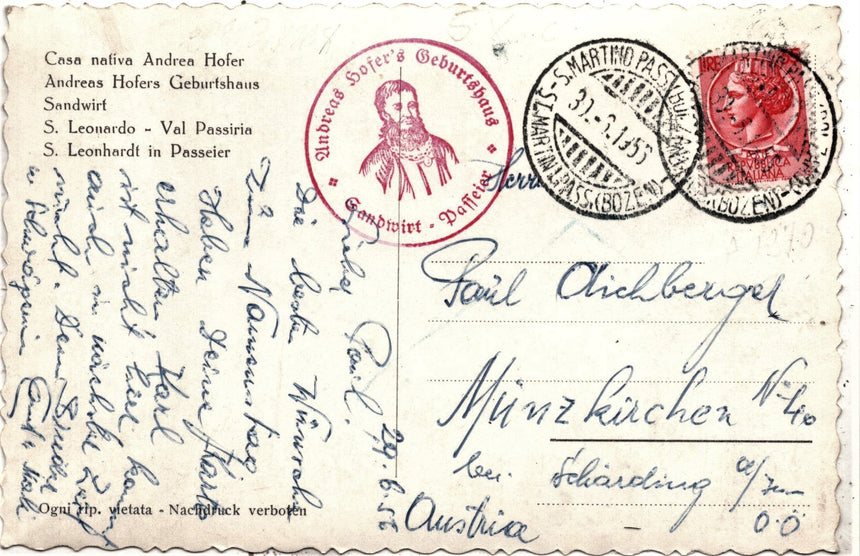 Casa nativa Andrea Hofer
Andreas Hofers Geburtshaus
Sandwirt
S. Leonardo - Val Passiria
S. Leonhardt in Passeier
Andreas Hofer's Geburtshaus
Sandwirt - Passeier
S. MARTINO PASS. (BOLZANO)
ST. MARTIN I. PASS. (BOZEN)
LIRE
ITALIANA
Herrn
Paul Aichberger
Münzkirchen No 40
bei Schärding a/Inn
O.Ö
Austria
29.6.56
Lieber Paul.
Die besten Wünsche
zum Namenstag
Haben Deine Karte
erhalten Karl
ist nicht hier kommt
auch in nächster Zeit
nicht. Dein Bruder
u Schwägerin
Ogni rip. vietata - Nachdruck verboten